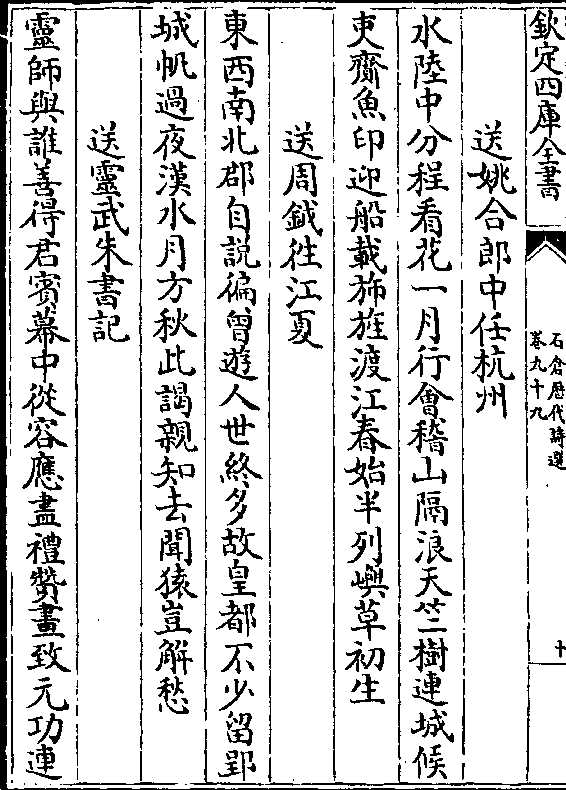 欽定四庫全書
石倉歷代詩選
卷九十九
十
送姚合郎中任杭州
水陸中分程看花一月行會稽山隔浪天竺樹連城候
吏齎魚印迎船載斾旌渡江春始半列嶼草初生
送周鉞徃江夏
東西南北郡自説徧曾遊人世終多故皇都不少留郢
城帆過夜漢水月方秋此謁親知去聞猿豈解愁
送靈武朱書記
靈師與誰善得君賓幕中從容應盡禮贊畫致元功連